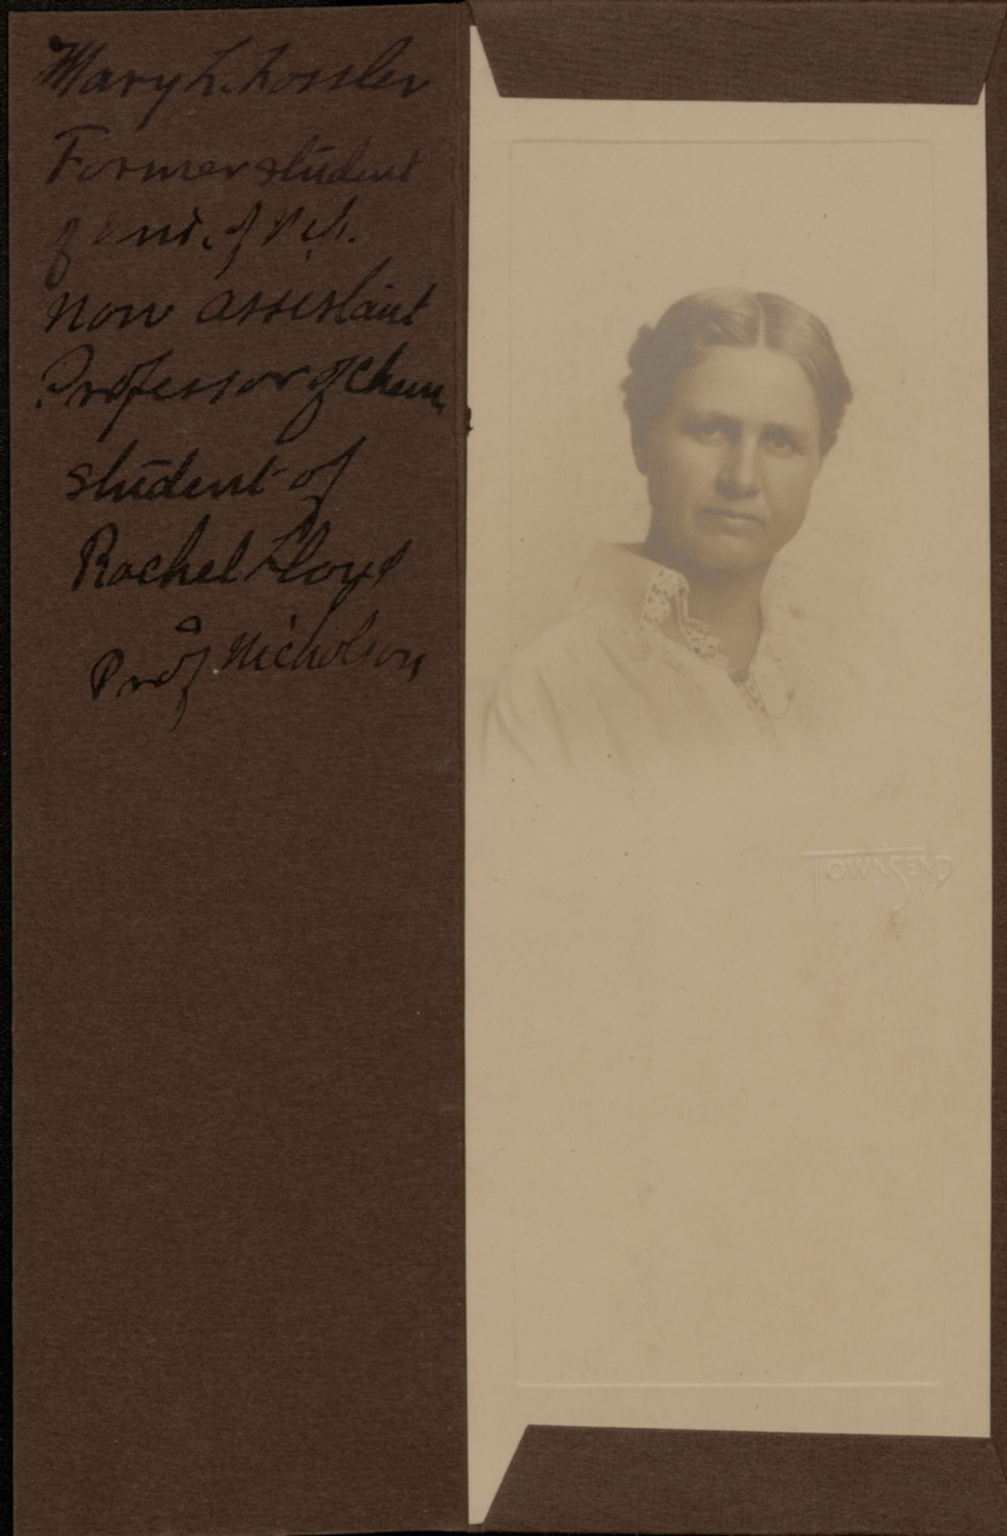 Mary L. Fossler
Former student
of Uni. of Neb.
now assistant
Professor of Chem.
student of
Rachel Lloyd
Prof Nicholson
TOWNSEND